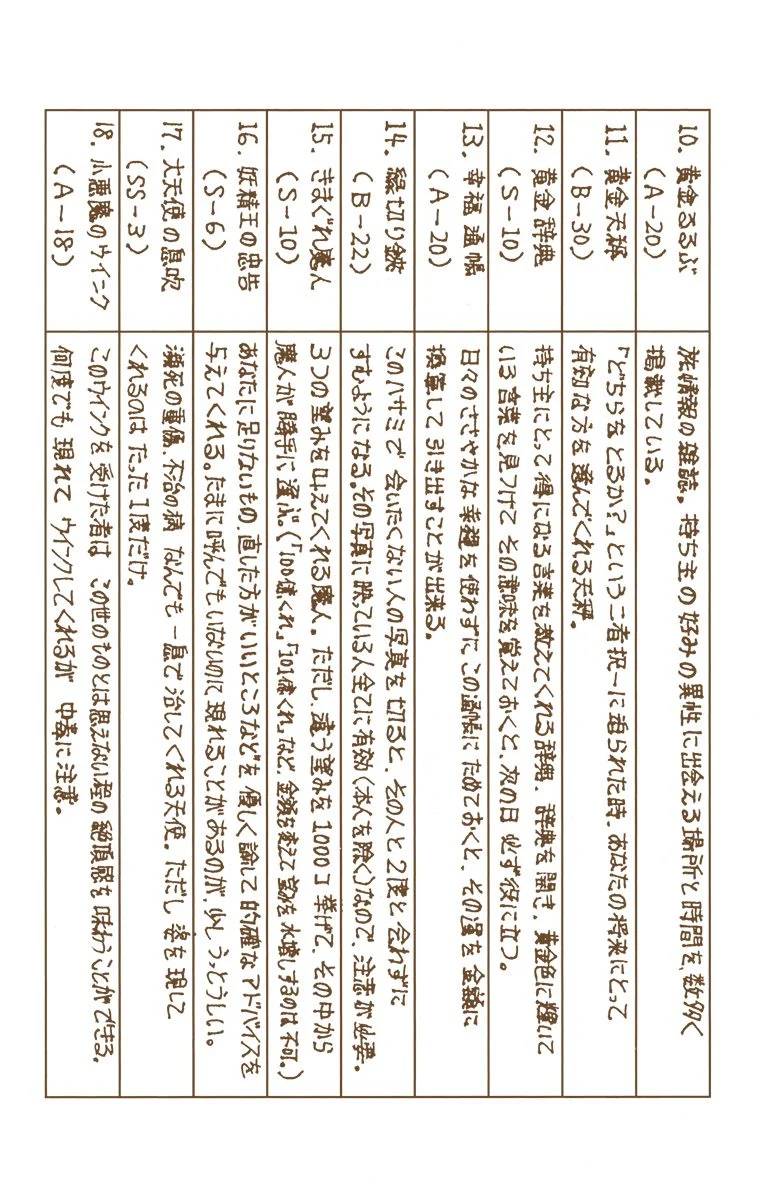 10. 黄金るるぶ
(A-20)
旅情報の雑誌。持ち主の好みの異性に出会える場所と時間を、数多く
掲載している。
11. 黄金天秤
(B-30)
「どちらをとるか?」という二者択一に迫られた時、あなたの将来にとって
有効な方を選んでくれる天秤。
12. 黄金辞典
(S-10)
持ち主にとって得になる言葉を教えてくれる辞典。辞典を開き、黄金色に輝いて
いる言葉を見つけて その意味を覚えておくと、次の日 必ず役に立つ。
13. 幸福通帳
(A-20)
日々のささやかな幸福を使わずに この通帳に ためておくと、その運を金額に
換算して引き出すことが出来る。
14. 縁切り鋏
(B-22)
このハサミで 会いたくない人の写真を切ると、その人と2度と会わずに
すむようになる。その写真に映っている人全てに有効(本人を除く)なので、注意が必要。
15. きまぐれ魔人
(S-10)
3つの望みを叶えてくれる魔人。ただし、違う望みを1000コ挙げて、その中から
魔人が勝手に選ぶ。(「100億くれ」「101億くれ」など、金額を変えて望みを水増しするのは不可。)
16. 妖精王の忠告
(S-6)
あなたに足りないもの、直した方がいいところなどを 優しく諭して 的確なアドバイスを
与えてくれる。たまに呼んでもいないのに 現れることがあるのが、少し うっとうしい。
17. 大天使の息吹
(SS-3)
瀕死の重傷、不治の病 なんでも一息で治してくれる天使。ただし 姿を現して
くれるのは たった1度だけ。
18. 小悪魔のウインク
(A-18)
このウインクを受けた者は この世のものとは思えない程の絶頂感を味わうことができる。
何度でも 現れて ウインクしてくれるが 中毒に注意。